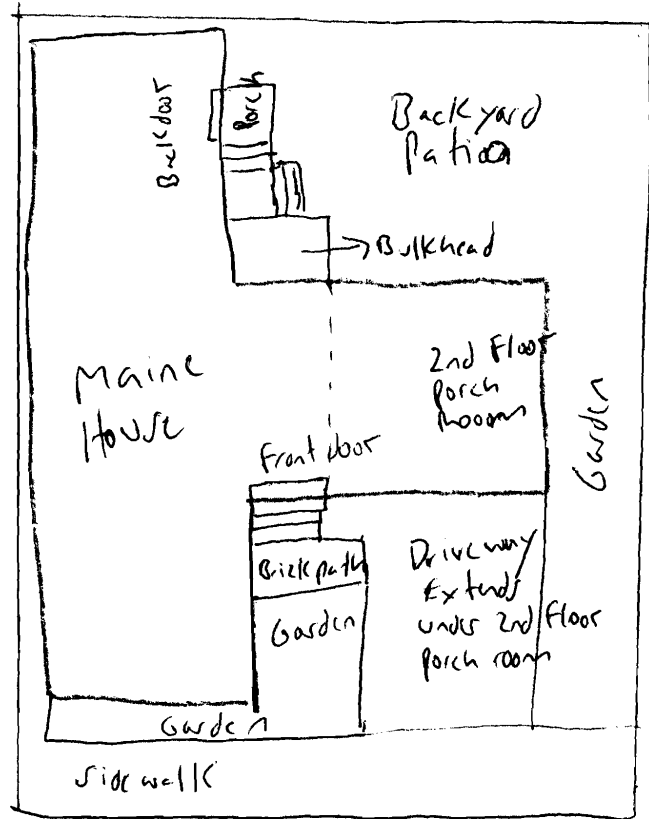 Backdoor
Porch
Backyard
Patio
Bulkhead
Maine
House
2nd Floor
Porch
Rooom
Garden
Front door
Brick path
Garden
Driveway
Extends
under 2nd Floor
porch room
Garden
Sidewalk